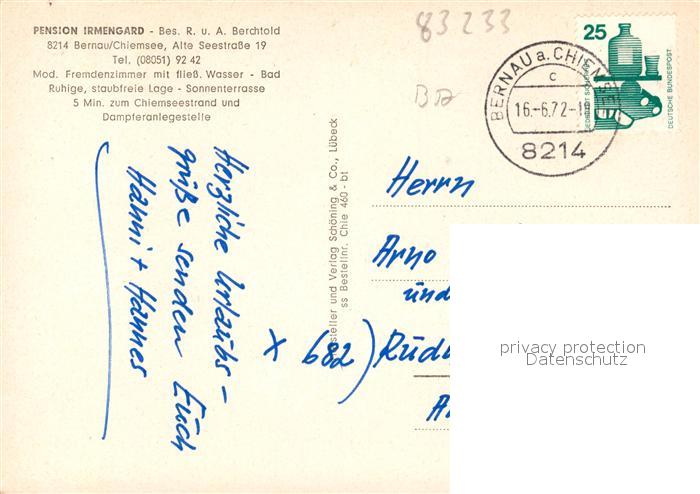 PENSION IRMENGARD - Bes. R. u. A. Berchtold
8214 Bernau/Chiemsee, Alte Seestraße 19
Tel. (08051) 92 42
Mod. Fremdenzimmer mit fließ. Wasser - Bad
Ruhige, staubfreie Lage - Sonnenterrasse
5 Min. zum Chiemseestrand und
Dampferanlegestelle
83233
BERNAU a. CHIEMSEE
c
16.-6.72-18
8214
25
DEUTSCHE BUNDESPOST
Herzliche Urlaubs-
grüße senden Euch
Hanni + Hannes
steller und Verlag Schöning & Co., Lübeck
ss Bestellnr. Chie 460 - bt
Herrn
Arno
und
x 682) Rüd
privacy protection
Datenschutz